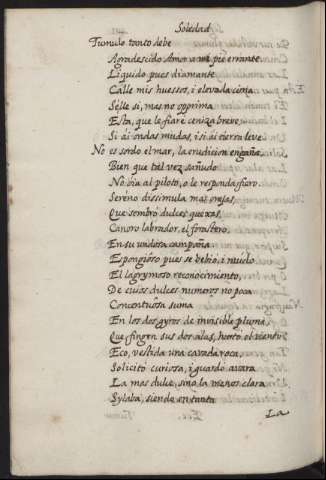 Soledad
Tumulo tanto debe
Agradescido Amor a mi pie errante.
Liquido pues diamante
Calle mis huessos, i elevada cima
Selle si, mas no opprima
Esta, que le fiarè ceniza breve,
Si ai ondas mudas, i si ai tierra leve.
No es sordo el mar, la erudicion engaña,
Bien que tal vez sañudo
No oia al piloto, o le responda fiero.
Sereno dissimula mas orejas,
Que sembrò dulces quexas,
Canoro labrador, el forastero,
En su undosa campaña.
Espongioso pues se bebio, i mudo
El lagrymoso reconocimiento,
De cuios dulces numeros no poca
Concentuosa suma
En los dos gyros de invisible pluma,
Que fingen sus dos alas, hurtò el viento
Eco, vestida una cavada roca,
Solicitò curiosa, i guardò avara
La mas dulce, sino la menos clara
Sylaba, siendo en tanto
La